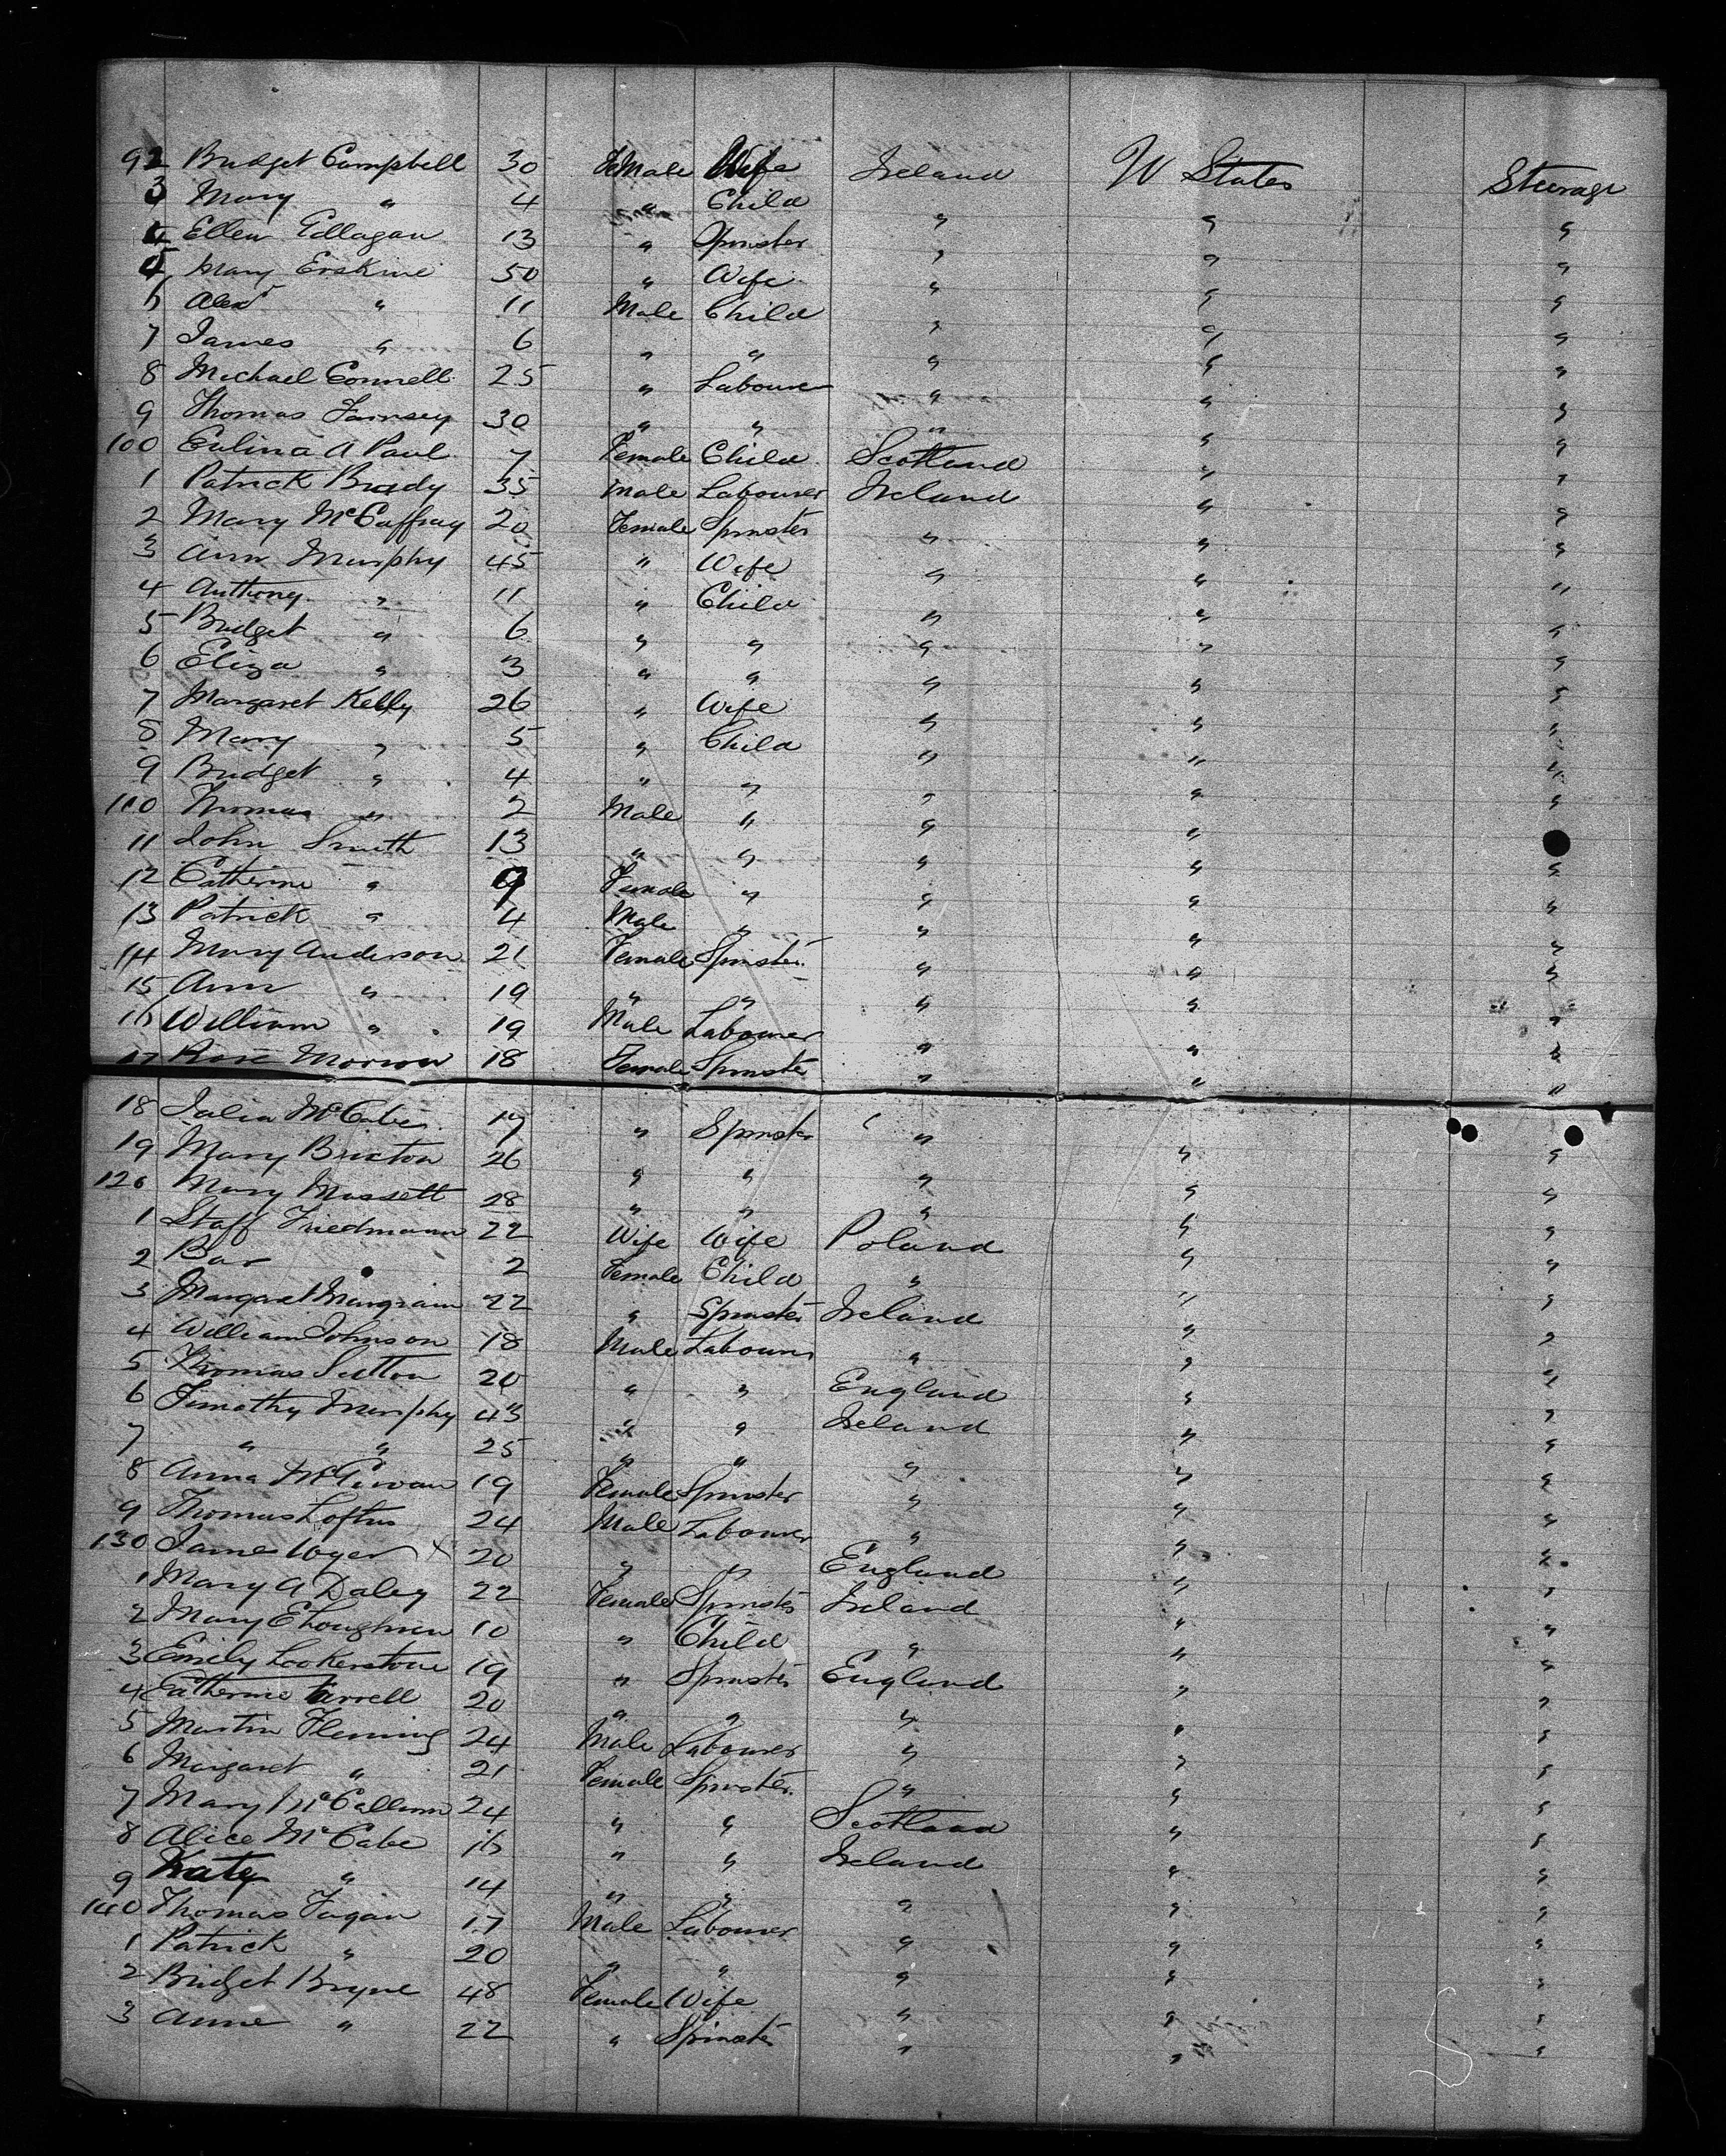 92 Bridget Campbell 30 Female Wife Ireland U States Steerage
3 Mary " 4 " Child " " "
4 Ellen 13 " Spinster " " "
5 Mary Erskine 50 " Wife " " "
6 Alexr " 11 Male Child " " "
7 James " 6 " " " " "
8 Michael Connell 25 " Labourer " " "
9 Thomas 30 " " " " "
100 Eulina A Paul 7 Female Child Scotland " "
1 Patrick Brady 35 Male Labourer Ireland " "
2 Mary McCaffray 20 Female Spinster " " "
3 Ann Murphy 45 " Wife " " "
4 Anthony " 11 " Child " " "
5 Bridget " 6 " " " " "
6 Eliza " 3 " " " " "
7 Margaret Kelly 26 " Wife " " "
8 Mary " 5 " Child " " "
9 Bridget " 4 " " " " "
110 Thomas " 2 Male " " " "
11 John Smith 13 " " " " "
12 Catherine " 9 Female " " " "
13 Patrick " 4 Male " " " "
14 Mary Anderson 21 Female Spinster " " "
15 Ann " 19 " " " " "
16 William " 19 Male Labourer " " "
17 Rose Morrow 18 Female Spinster " " "
18 Julia McCabe 17 " Spinster " " "
19 Mary Brixton 26 " " " " "
120 Mary Massett 28 " " " " "
1 Staff Friedmann 22 Wife Wife Poland " "
2 Bar 2 Female Child " " "
3 Margaret Mangan 22 " Spinster Ireland " "
4 William Johnson 18 Male Labourer " " "
5 Thomas Sutton 20 " " England " "
6 Timothy Murphy 43 " " Ireland " "
7 " " 25 " " " " "
8 Anna McGivan 19 Female Spinster " " "
9 Thomas Loftus 24 Male Labourer " " "
130 James X 20 " " England " "
1 Mary A Daley 22 Female Spinster Ireland " "
2 Mary E Loughren 10 " Child " " "
3 Emily Lookerstone 19 " Spinster England " "
4 Catherine Farrell 20 " " " " "
5 Martin Fleming 24 Male Labourer " " "
6 Margaret " 21 Female Spinster " " "
7 Mary McCallum 24 " " Scotland " "
8 Alice McCabe 16 " " Ireland " "
9 Katy " 14 " " " " "
140 Thomas Fagan 17 Male Labourer " " "
1 Patrick " 20 " " " " "
2 Bridget Bryne 48 Female Wife " " "
3 Anne " 22 " Spinster " " "